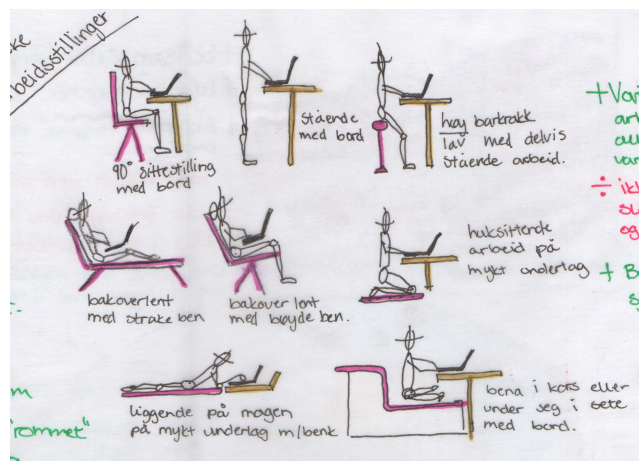 ske
rbeidsstillinger
90° sittestilling
med bord
stående
med bord
høy barkrakk
lav med delvis
stående arbeid.
bakoverlent
med strake ben
bakover lent
med bøyde ben.
huksittende
arbeid på
mykt underlag
liggende på magen
på mykt underlag m/benk
bena i kors eller
under seg i sete
med bord.
+ Vari
arb
var
÷ ik
og
+ B
s
m
rommet"